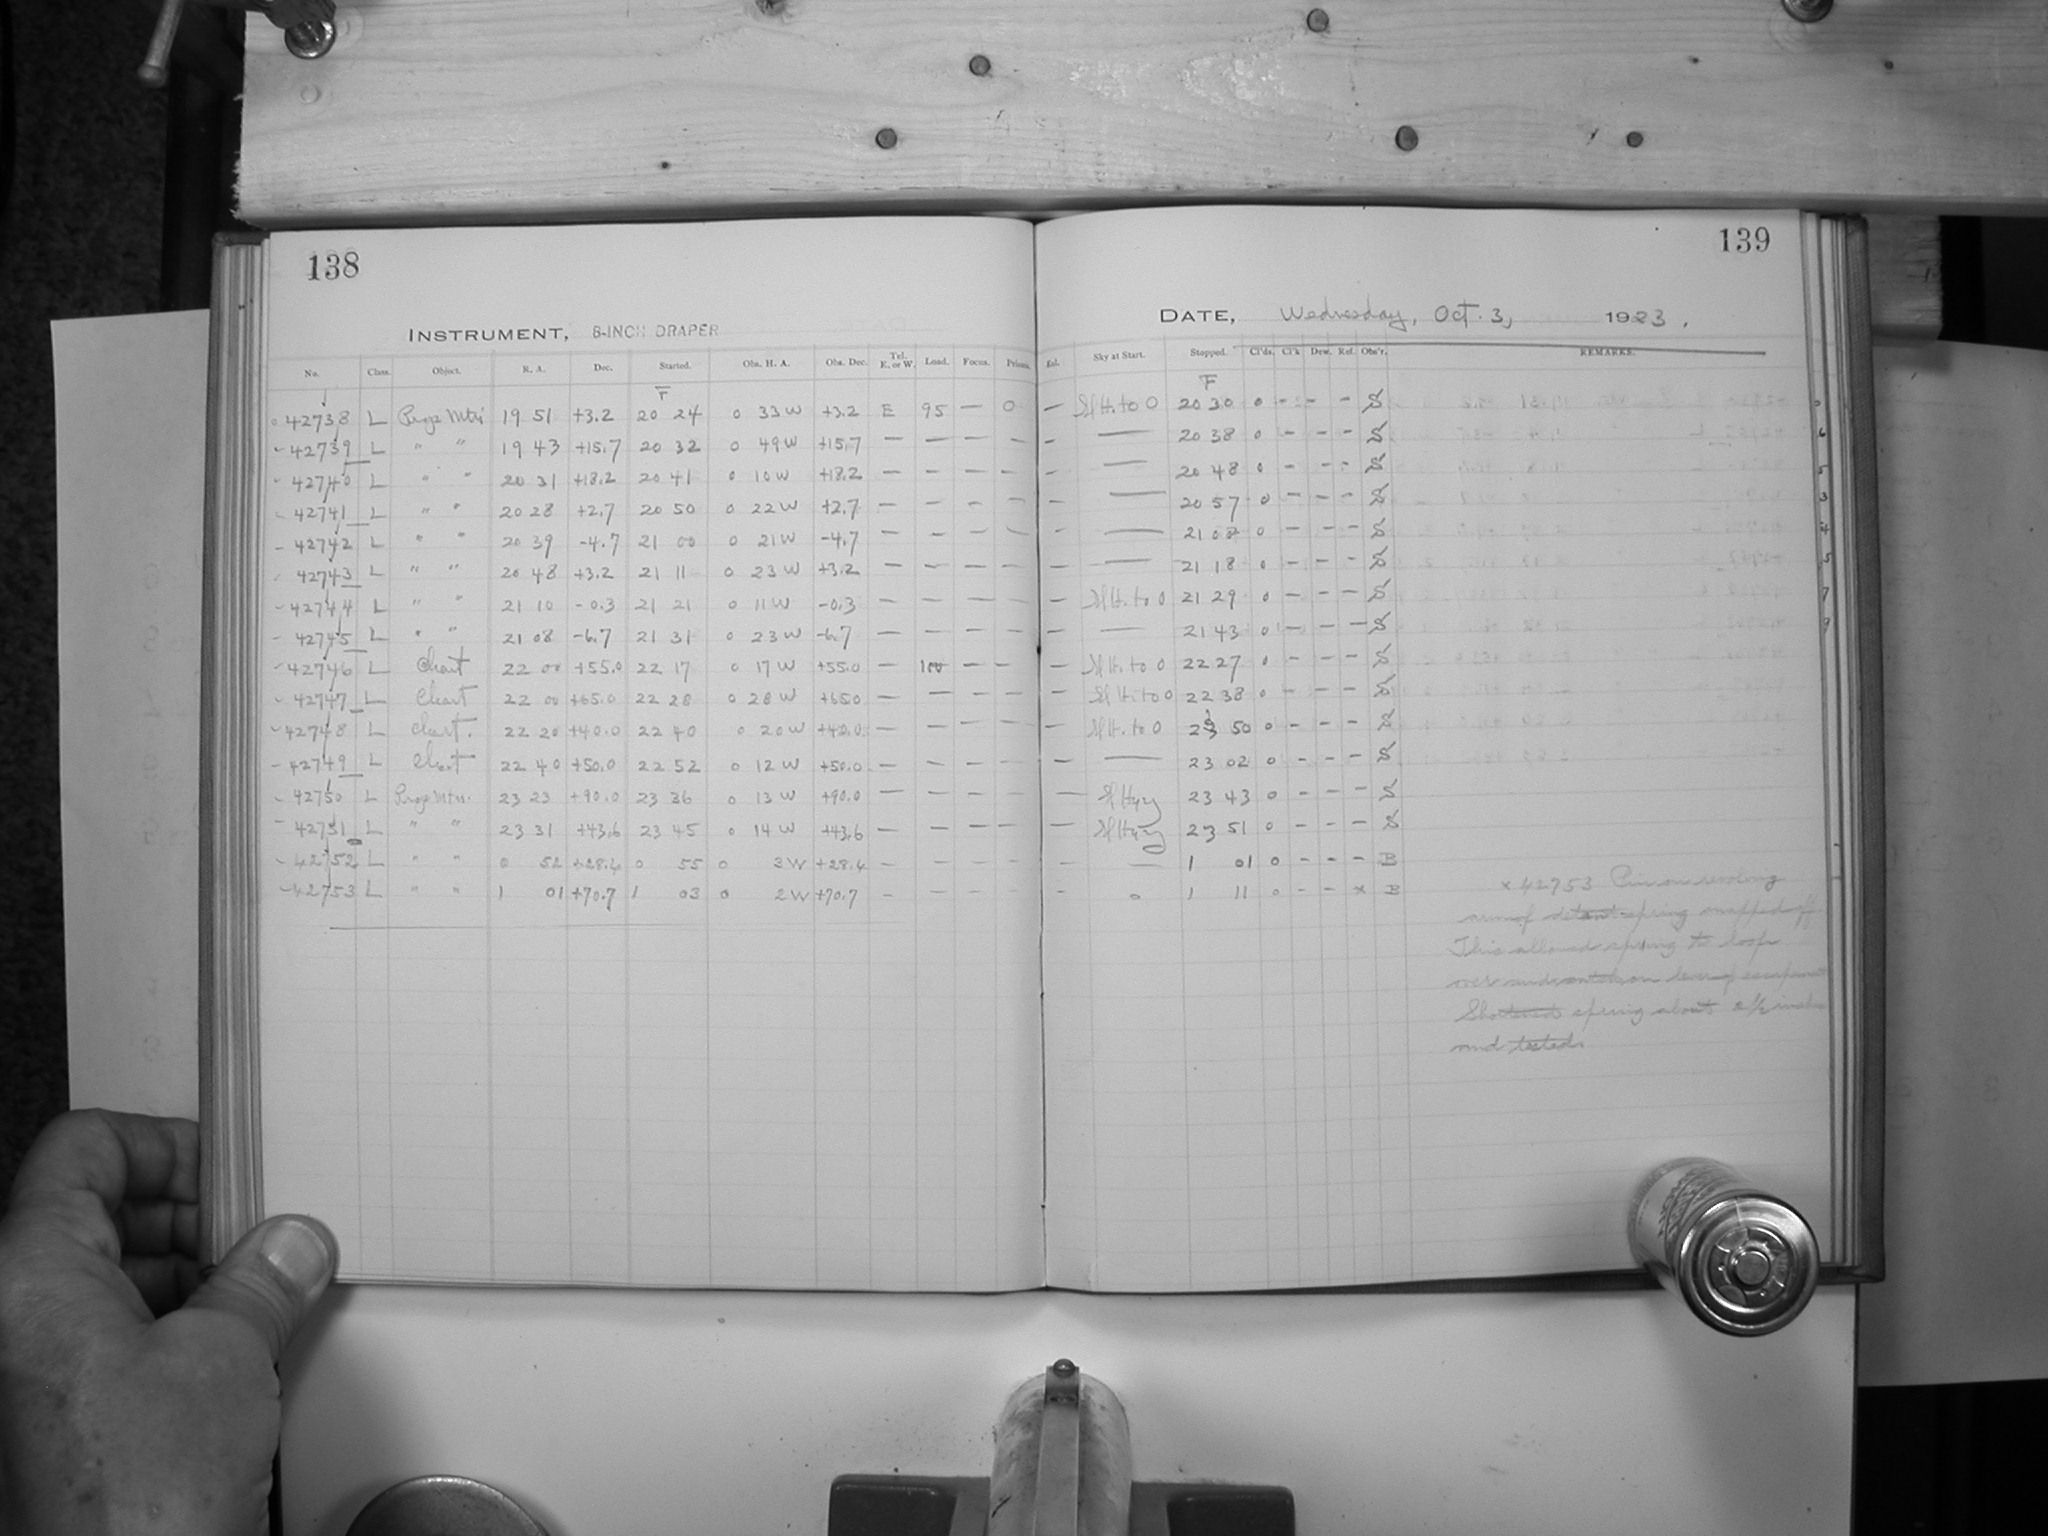 138
139
INSTRUMENT, 8-INCH DRAPER
DATE, Wednesday, Oct. 3, 1923.
No. Class. Object. R. A. Dec. Started. Obs. H. A. Obs. Dec. Tel. E. or W. Load. Focus. Prisms. Exl. Sky at Start. Stopped. Cl'ds. Cl'k Dew. Ref. Obs'r. REMARKS.
F F
42738 L Prop Mtn 19 51 +3.2 20 24 0 33 W +3.2 E 95 — 0 — Sl H. to 0 20 30 0 - - - S
42739 L " " 19 43 +15.7 20 32 0 49 W +15.7 — — — — — — 20 38 0 - - - S
42740 L " " 20 31 +18.2 20 41 0 10 W +18.2 — — — — — — 20 48 0 - - - S
42741 L " " 20 28 +2.7 20 50 0 22 W +2.7 — — — — — — 20 57 0 - - - S
42742 L " " 20 39 -4.7 21 00 0 21 W -4.7 — — — — — — 21 08 0 - - - S
42743 L " " 20 48 +3.2 21 11 0 23 W +3.2 — — — — — — 21 18 0 - - - S
42744 L " " 21 10 -0.3 21 21 0 11 W -0.3 — — — — — Sl H. to 0 21 29 0 - - - S
42745 L " " 21 08 -6.7 21 31 0 23 W -6.7 — — — — — — 21 43 0 - - - S
42746 L Chart 22 00 +55.0 22 17 0 17 W +55.0 — 100 — — — Sl H. to 0 22 27 0 - - - S
42747 L Chart 22 00 +65.0 22 28 0 28 W +65.0 — — — — — Sl H. to 0 22 38 0 - - - S
42748 L Chart. 22 20 +40.0 22 40 0 20 W +40.0 — — — — — Sl H. to 0 22 50 0 - - - S
42749 L Chart 22 40 +50.0 22 52 0 12 W +50.0 — — — — — — 23 02 0 - - - S
42750 L Prop Mtn. 23 23 +90.0 23 36 0 13 W +90.0 — — — — — Sl Hzy 23 43 0 - - - S
42751 L " " 23 31 +43.6 23 45 0 14 W +43.6 — — — — — Sl Hzy 23 51 0 - - - S
42752 L " " 0 52 +28.4 0 55 0 3 W +28.4 — — — — — — 1 01 0 - - - B
42753 L " " 1 01 +70.7 1 03 0 2 W +70.7 — — — — — 0 1 11 0 - - x B
x 42753 Pinion
arm of detent spring snapped off
This allowed spring to loop
over and catch on lever of escapement
Shortened spring about 2 1/2 inches
and tested.